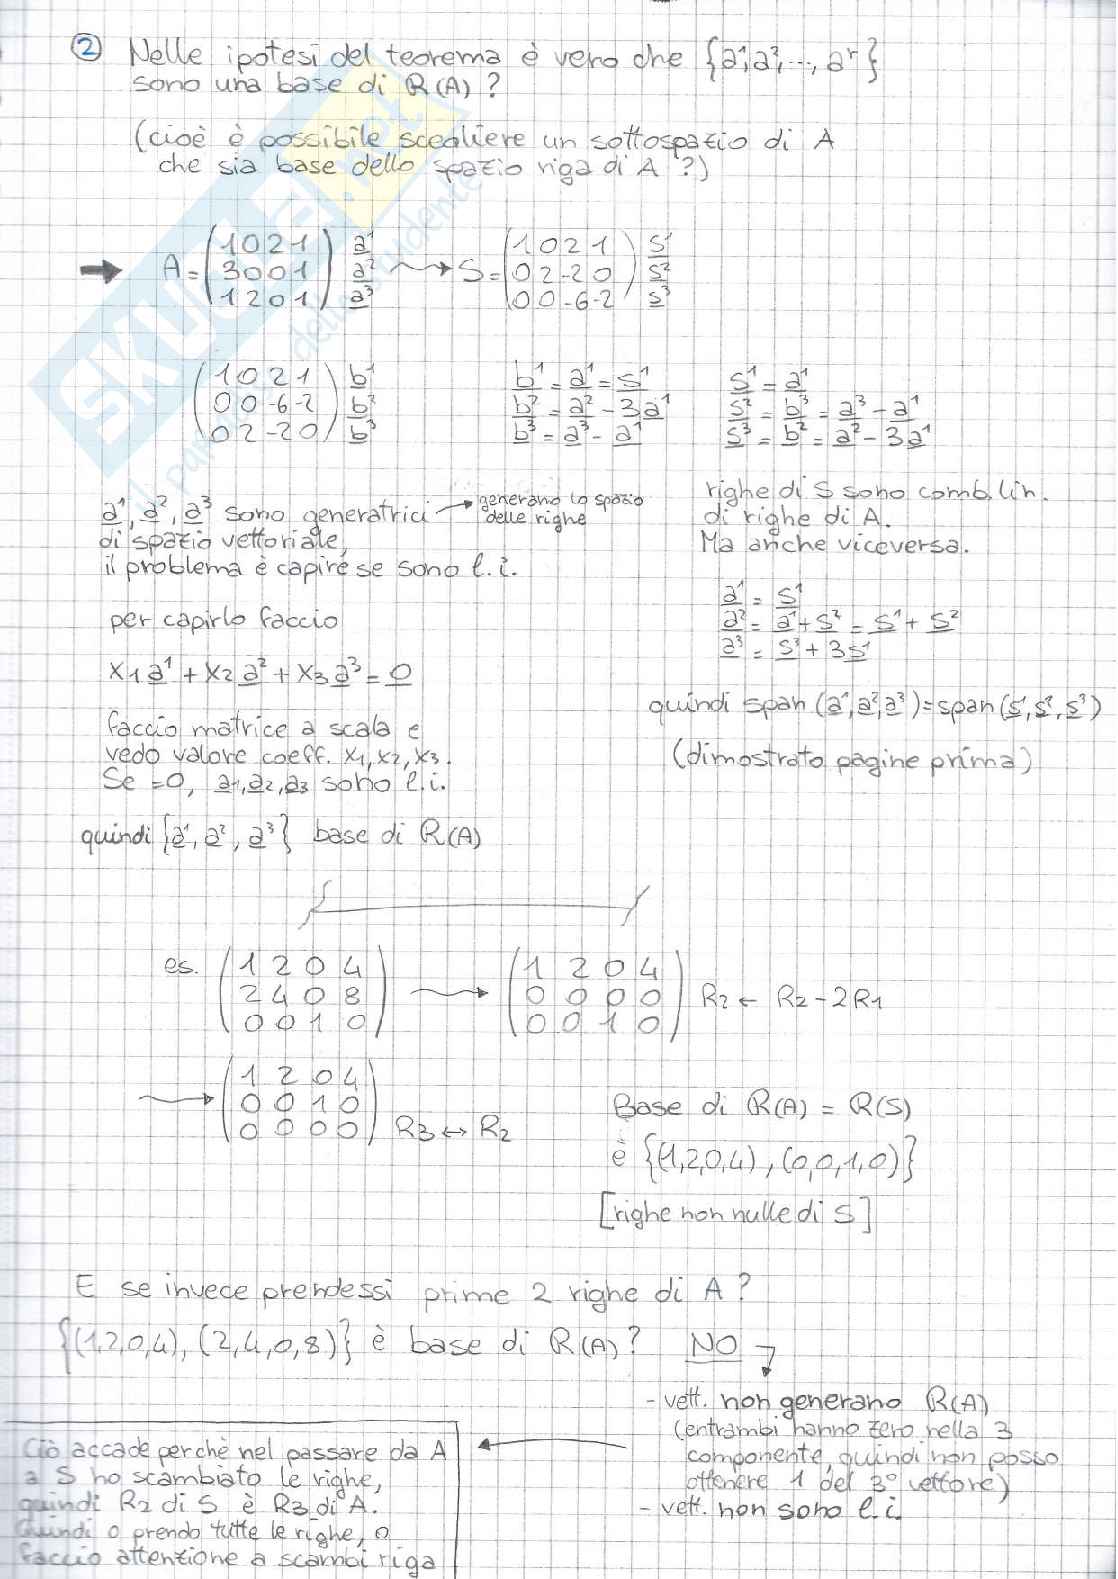 ② Nelle ipotesi del teorema è vero che {a¹, a², ..., aʳ}
sono una base di R(A) ?
(cioè è possibile scegliere un sottospazio di A
che sia base dello spazio riga di A ?)
A = (1 0 2 1) a¹
(3 0 0 1) a²
(1 2 0 1) a³
⇝ S = (1 0 2 1) s¹
(0 2 -2 0) s²
(0 0 -6 -2) s³
(1 0 2 1) b¹
(0 0 -6 -2) b²
(0 2 -2 0) b³
b¹ = a¹ = s¹
b² = a² - 3a¹
b³ = a³ - a¹
s¹ = a¹
s² = b³ = a³ - a¹
s³ = b² = a² - 3a¹
a¹, a², a³ sono generatrici → generano lo spazio
delle righe
di spazio vettoriale,
il problema è capire se sono l.i.
righe di S sono comb. lin.
di righe di A.
Ma anche viceversa.
per capirlo faccio
x₁a¹ + x₂a² + x₃a³ = 0
a¹ = s¹
a² = a¹ + s² = s¹ + s²
a³ = s³ + 3s¹
faccio matrice a scala e
vedo valore coeff. x₁, x₂, x₃.
Se =0, a₁, a₂, a₃ sono l.i.
quindi span (a¹, a², a³) = span (s¹, s², s³)
(dimostrato pagine prima)
quindi {a¹, a², a³} base di R(A)
es. (1 2 0 4)
(2 4 0 8)
(0 0 1 0)
⇝ (1 2 0 4)
(0 0 0 0) R₂ ← R₂ - 2R₁
(0 0 1 0)
⇝ (1 2 0 4)
(0 0 1 0)
(0 0 0 0) R3 ↔ R₂
Base di R(A) = R(S)
è {(1,2,0,4), (0,0,1,0)}
[righe non nulle di S]
E se invece prendessi prime 2 righe di A ?
{(1,2,0,4), (2,4,0,8)} è base di R(A) ? NO
- vett. non generano R(A)
(entrambi hanno zero nella 3
componente, quindi non posso
ottenere 1 del 3° vettore)
- vett. non sono l.i.
Ciò accade perchè nel passare da A
a S ho scambiato le righe,
quindi R₂ di S è R3 di A.
Quindi o prendo tutte le righe, o
faccio attenzione a scambi riga